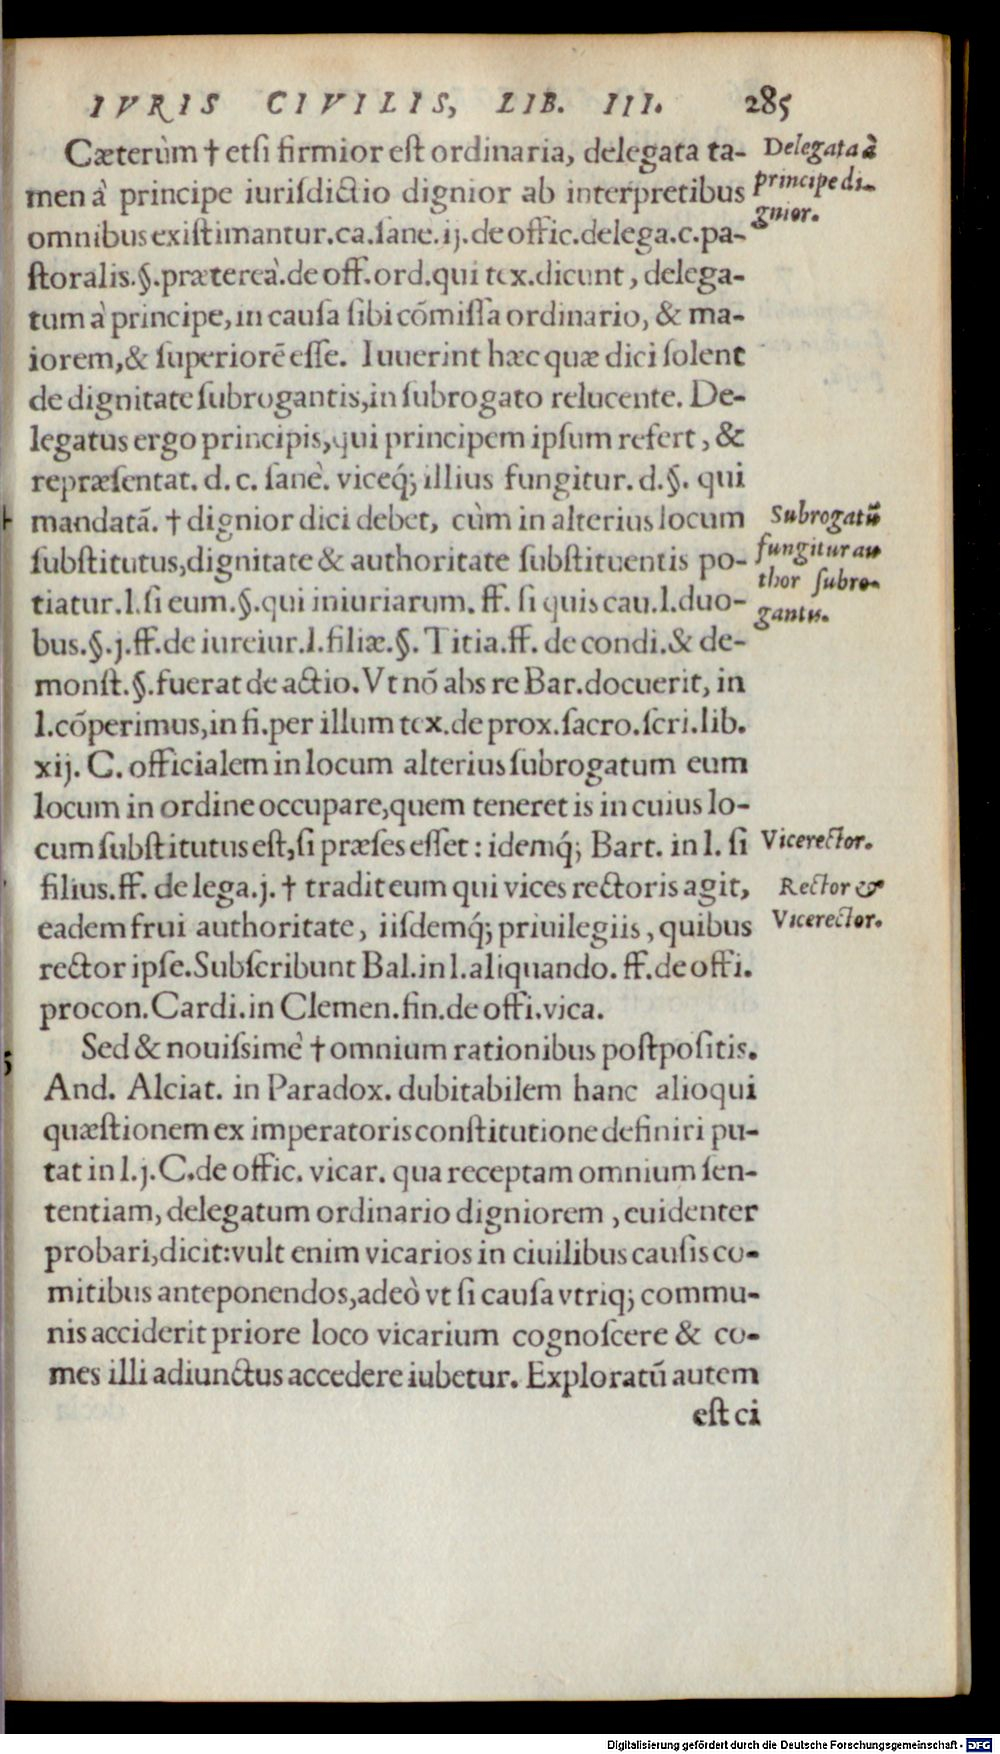 IVRIS CIVILIS, LIB. III. 285
Cæterùm † etsi firmior est ordinaria, delegata ta-
men à principe iurisdictio dignior ab interpretibus
omnibus existimantur. ca. sane. ij. de offic. delega. c. pa-
storalis. §. prætereà. de off. ord. qui tex. dicunt, delega-
tum à principe, in causa sibi cōmissa ordinario, & ma-
iorem, & superiorē esse. Iuuerint hæc quæ dici solent
de dignitate subrogantis, in subrogato relucente. De-
legatus ergo principis, qui principem ipsum refert, &
repræsentat. d. c. sanè. viceq́; illius fungitur. d. §. qui
mandatā. † dignior dici debet, cùm in alterius locum
substitutus, dignitate & authoritate substituentis po-
tiatur. l. si eum. §. qui iniuriarum. ff. si quis cau. l. duo-
bus. §. j. ff. de iureiur. l. filiæ. §. Titia. ff. de condi. & de-
monst. §. fuerat de actio. Vt nō abs re Bar. docuerit, in
l. cōperimus, in fi. per illum tex. de prox. sacro. scri. lib.
xij. C. officialem in locum alterius subrogatum eum
locum in ordine occupare, quem teneret is in cuius lo-
cum substitutus est, si præses esset: idemq́; Bart. in l. si
filius. ff. de lega. j. † tradit eum qui vices rectoris agit,
eadem frui authoritate, iisdemq́; priuilegiis, quibus
rector ipse. Subscribunt Bal. in l. aliquando. ff. de offi.
procon. Cardi. in Clemen. fin. de offi. vica.
Sed & nouissimè † omnium rationibus postpositis.
And. Alciat. in Paradox. dubitabilem hanc alioqui
quæstionem ex imperatoris constitutione definiri pu-
tat in l. j. C. de offic. vicar. qua receptam omnium sen-
tentiam, delegatum ordinario digniorem, euidenter
probari, dicit: vult enim vicarios in ciuilibus causis co-
mitibus anteponendos, adeò vt si causa vtriq; commu-
nis acciderit priore loco vicarium cognoscere & co-
mes illi adiunctus accedere iubetur. Exploratū autem
est ci
Delegata à
principe di-
gnior.
Subrogatū
fungitur au
thor subro-
gantis.
Vicerector.
Rector &
Vicerector.
5
Digitalisierung gefördert durch die Deutsche Forschungsgemeinschaft - DFG